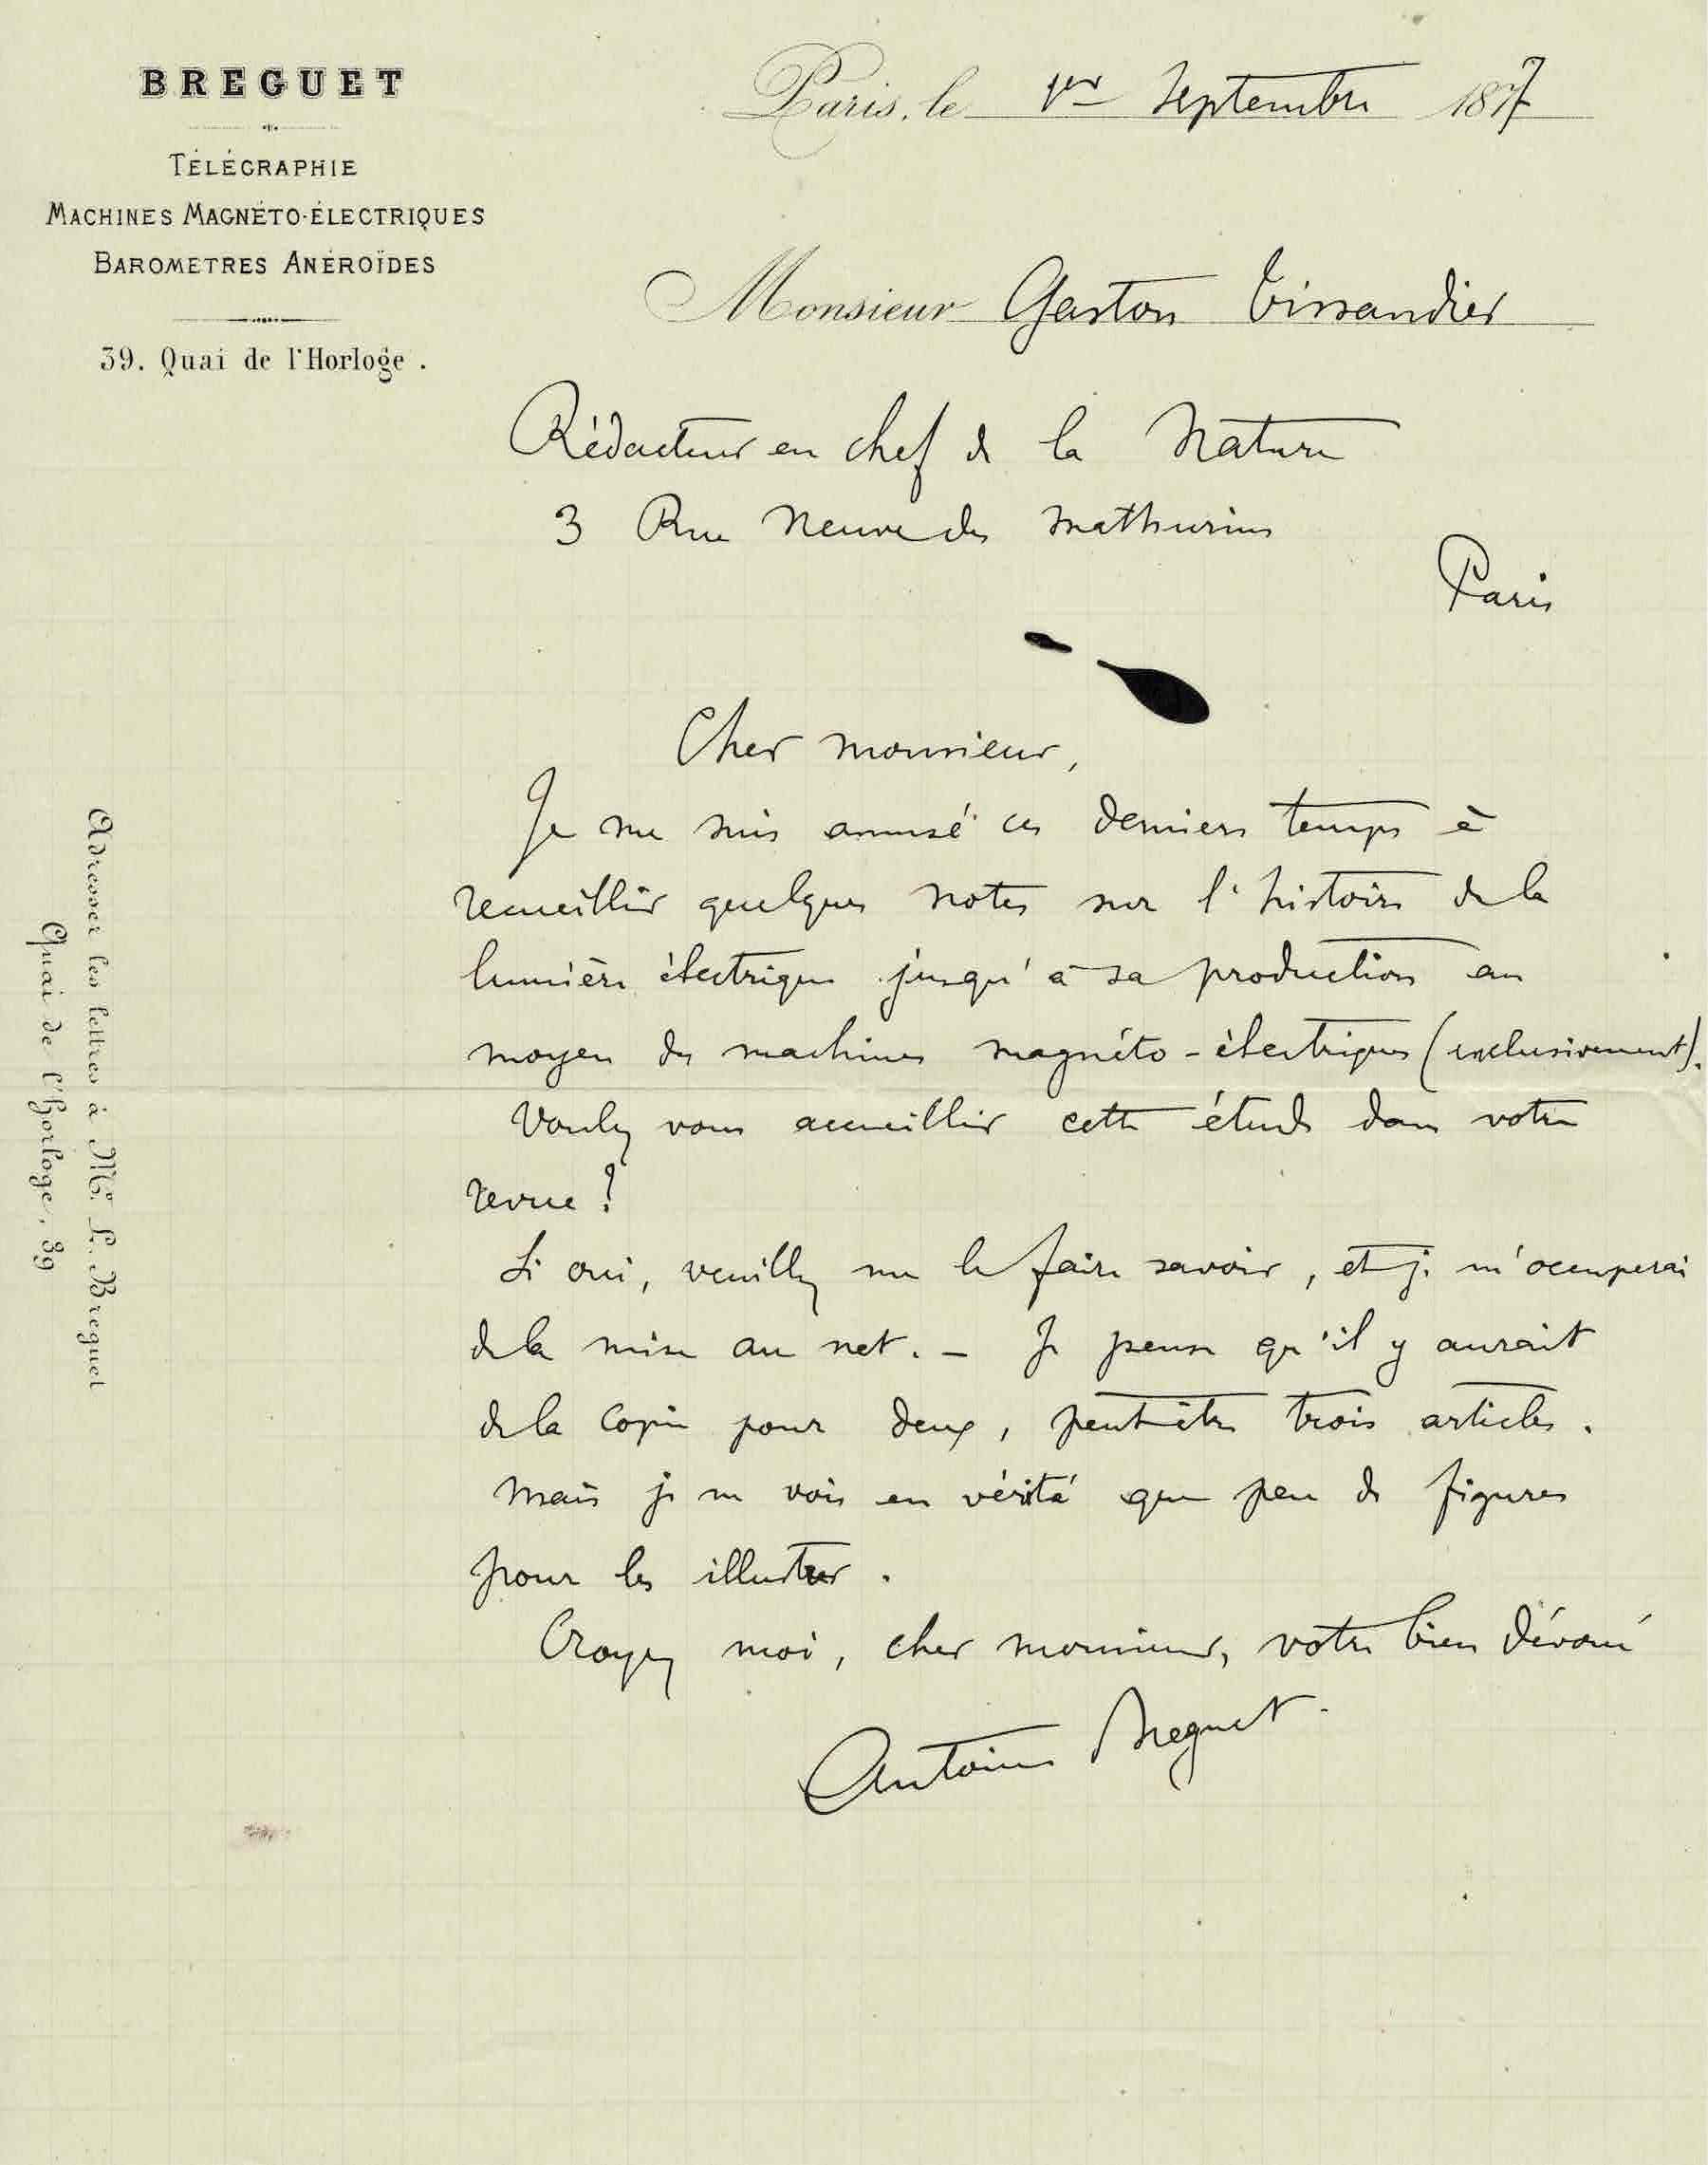 BREGUET
TÉLÉGRAPHIE
MACHINES MAGNÉTO-ÉLECTRIQUES
BAROMETRES ANÉROÏDES
39. Quai de l'Horloge.
Paris, le 1er Septembre 1877
Monsieur Gaston Tissandier
Rédacteur en chef de la Nature
3 Rue Neuve des Mathurins
Paris
Cher monsieur,
Je me suis amusé ces derniers temps à
recueillir quelques notes sur l'histoire de la
lumière électrique jusqu'à sa production au
moyen des machines magnéto-électriques (exclusivement).
Voulez vous accueillir cette étude dans votre
revue ?
Si oui, veuillez me le faire savoir, et je m'occuperai
de la mise au net. — Je pense qu'il y aurait
de la copie pour deux, peut-être trois articles.
Mais je ne vois en vérité que peu de figures
pour les illustrer.
Croyez moi, cher monsieur, votre bien dévoué
Antoine Breguet.
Adresser les lettres à Mr. L. Breguet
Quai de l'Horloge, 39